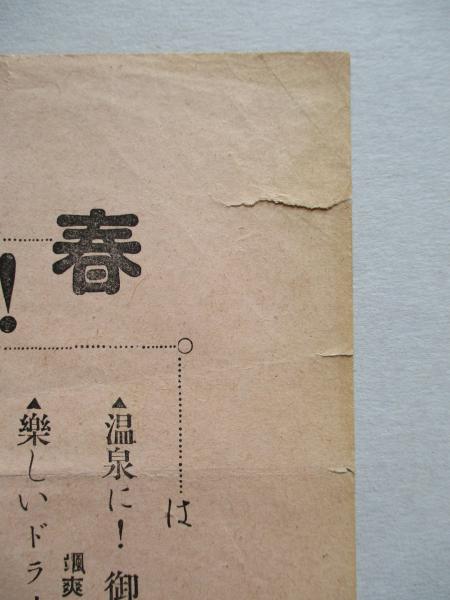 春
!
は
▲温泉に!御
颯爽
▲樂しいドラ